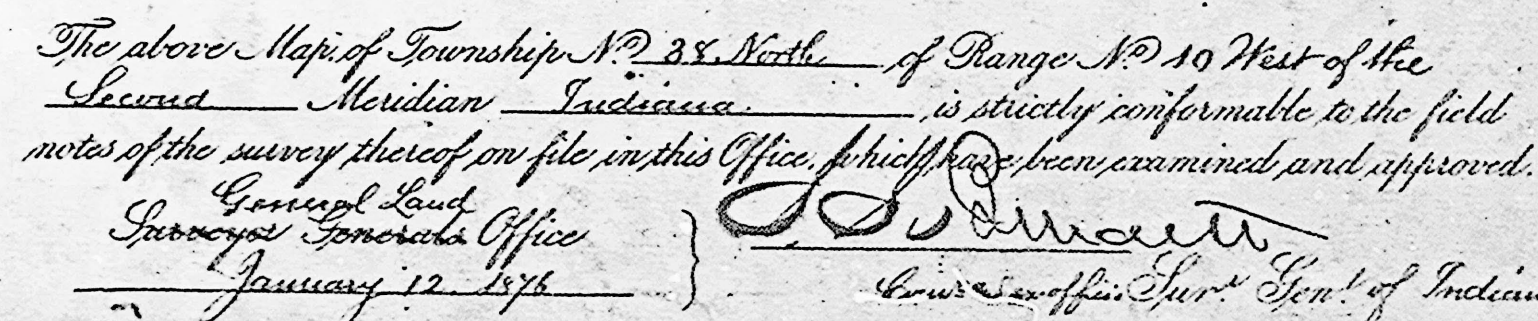 The above Map of Township No 38 North of Range No 10 West of the
Second Meridian Indiana is strictly conformable to the field
notes of the survey thereof on file in this Office, which have been examined and approved.
General Land
Surveyor Generals Office
January 12. 1876
Surr Genl of Indian